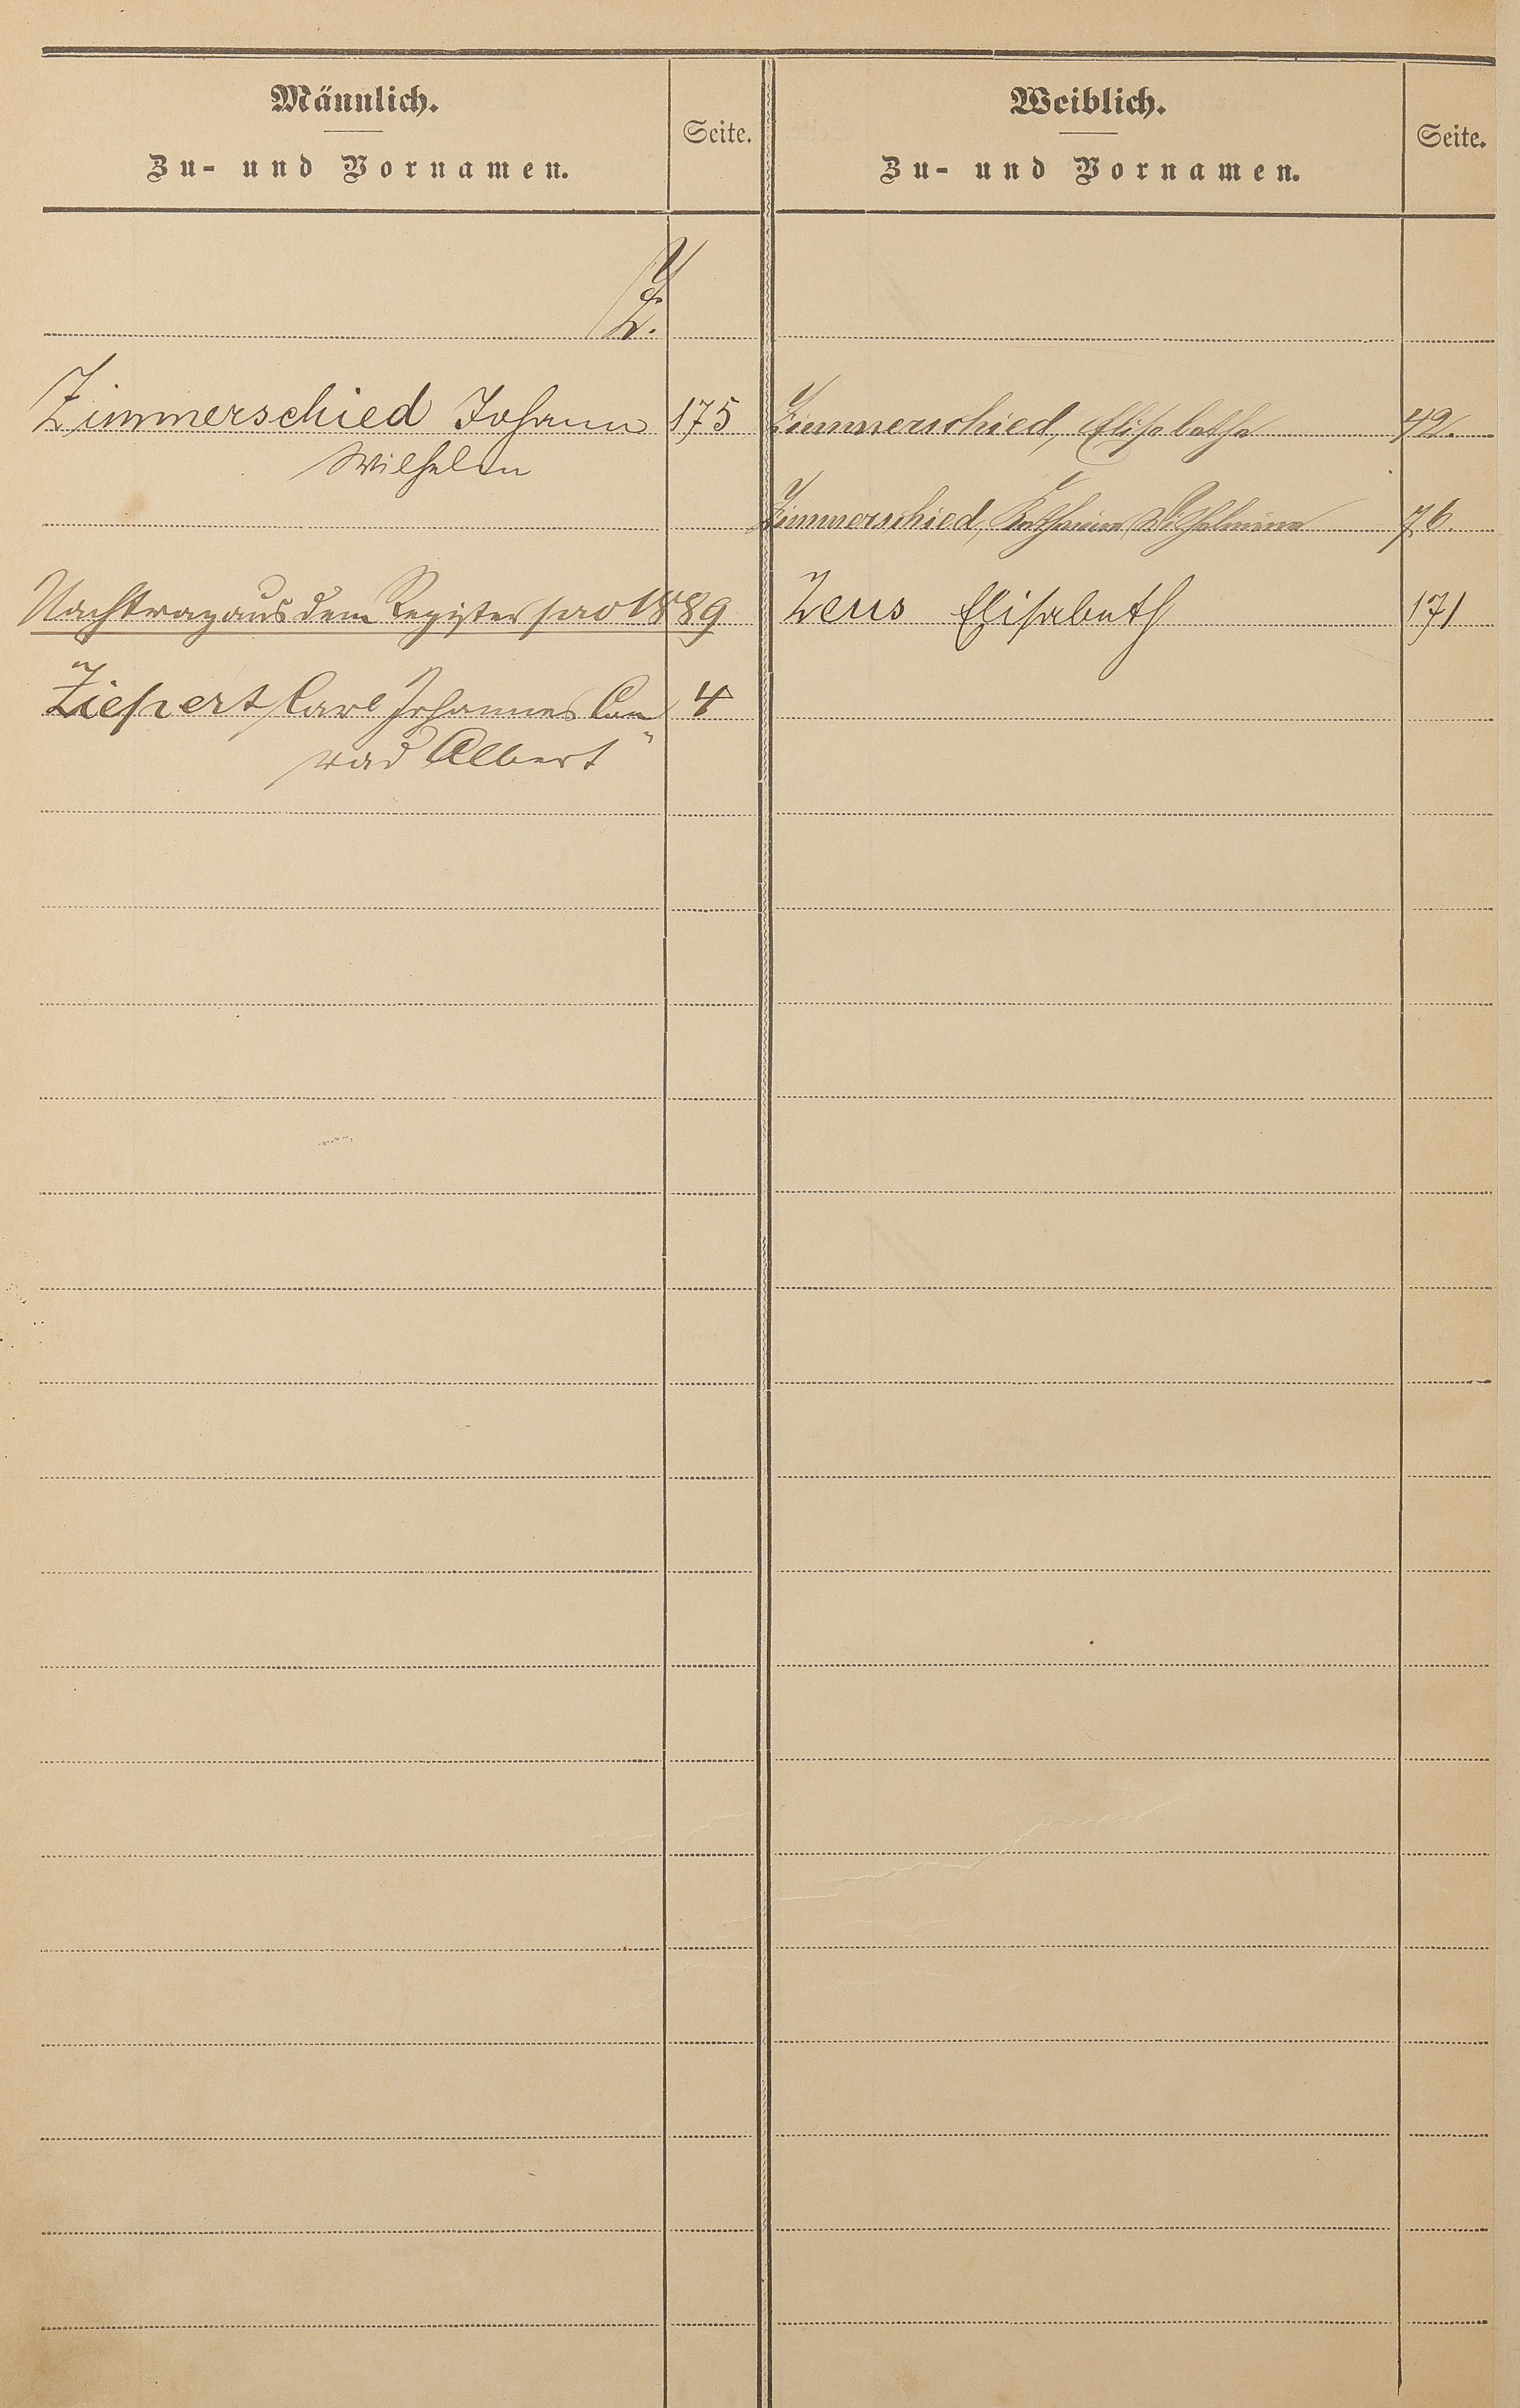 Männlich.
Zu- und Vornamen.
Seite.
Weiblich.
Zu- und Vornamen.
Seite.
Z.
Zimmerschied Johann 175
Wilhelm
Zimmerschied, Elisabetha 42.
Zimmerschied, Katharina Wilhelmine 76.
Nachtrag aus dem Register pro 1889
Zeus Elisabeth 171
Ziepert Carl Johannes Con 4
rad Albert